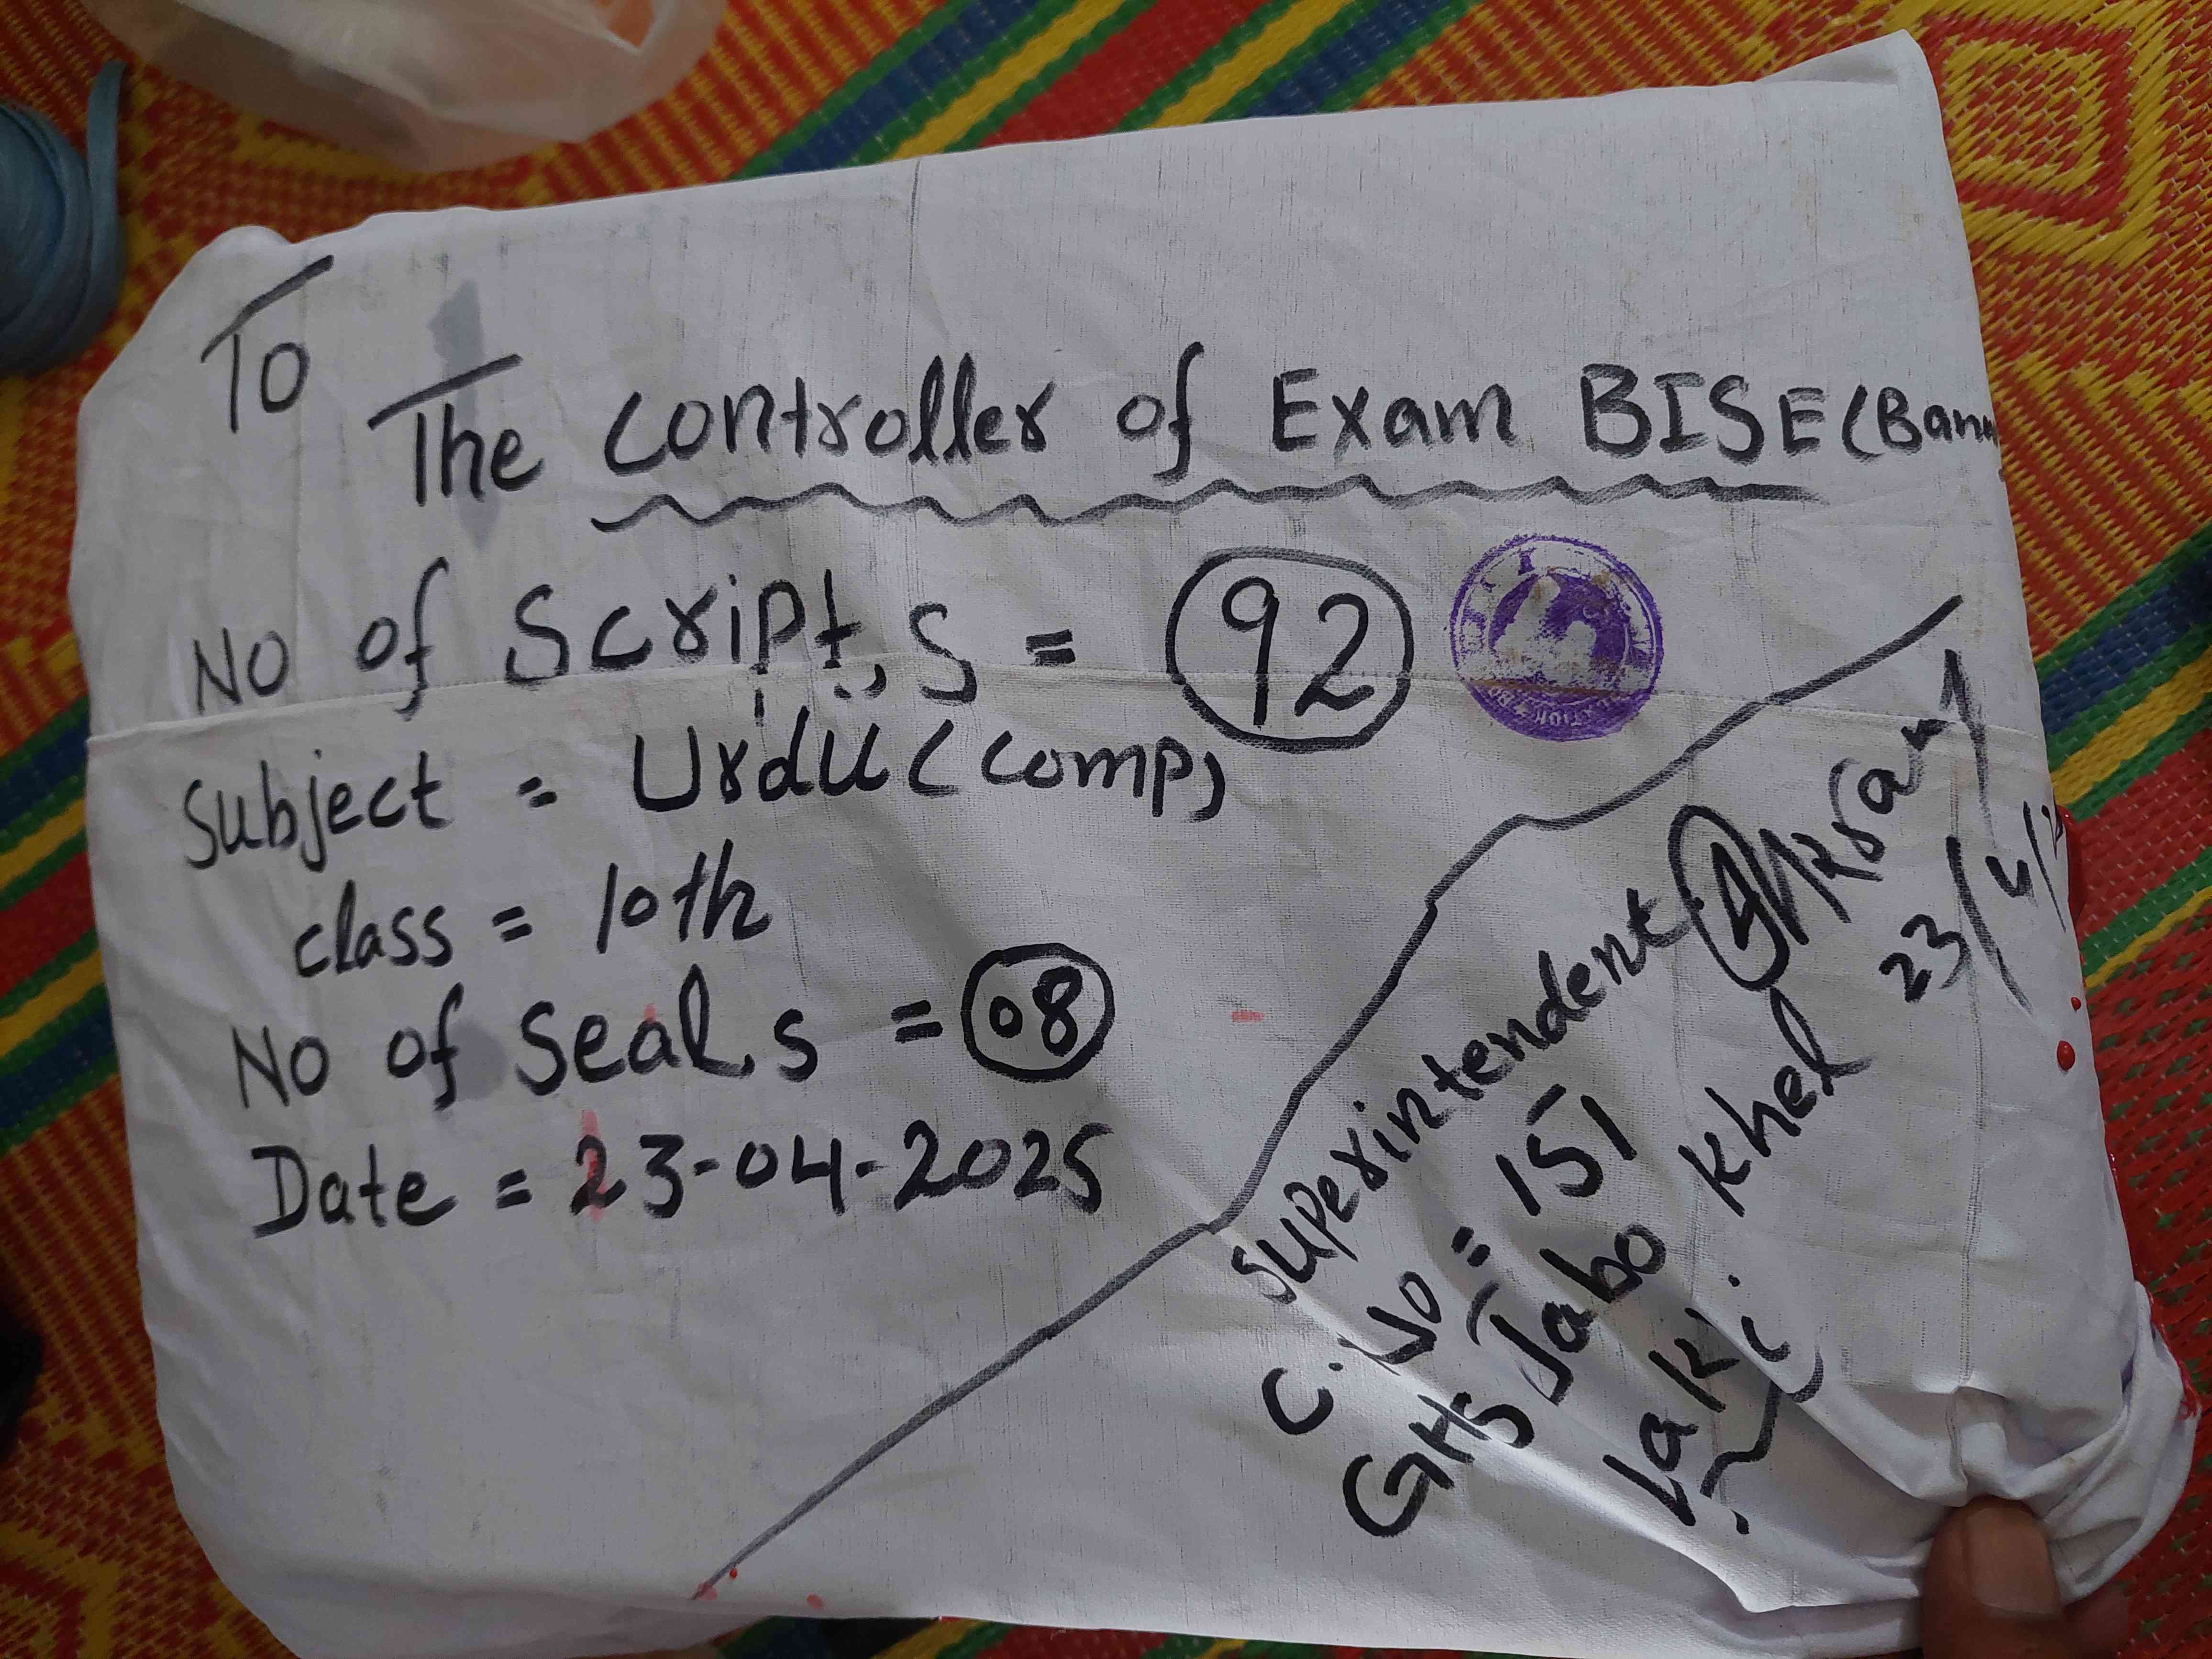 To
The Controller of Exam BISE (Bann
No of Scripts = 92
Subject = Urdu (Comp)
class = 10th
No of Seals = 08
Date = 23-04-2025
Superintendent
C.No = 151
GHS Jabo Khel
Lakki
23/4/2